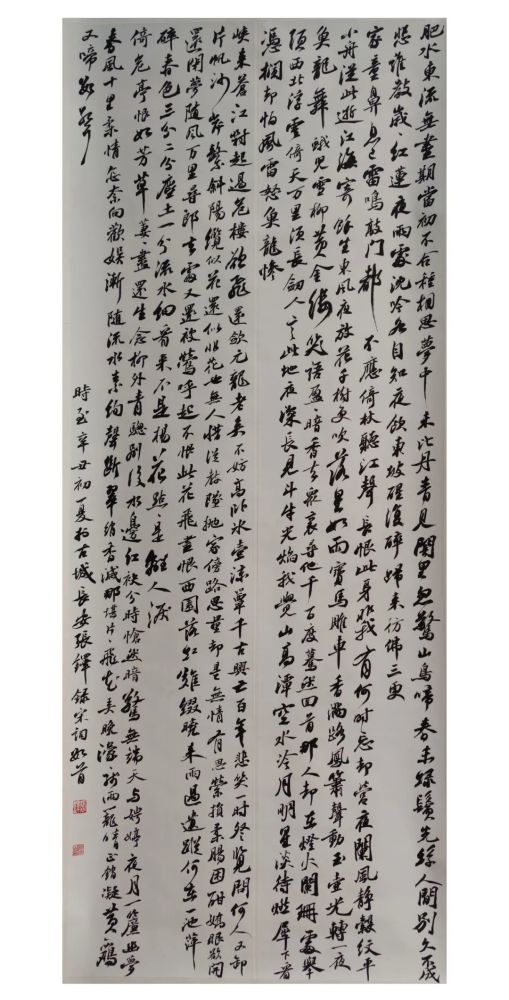 肥水東流無盡期當初不合種相思夢中未比丹青見闇里忽驚山鳥啼春未綠鬢先絲人間別久不成
悲誰教歲歲紅蓮夜兩處沈吟各自知夜飲東坡醒復醉歸來彷彿三更
家童鼻息已雷鳴敲門都不應倚杖聽江聲長恨此身非我有何時忘卻營營夜闌風靜縠紋平
小舟從此逝江海寄餘生東風夜放花千樹更吹落星如雨寶馬雕車香滿路鳳簫聲動玉壺光轉一夜
魚龍舞蛾兒雪柳黃金縷笑語盈盈暗香去衆裏尋他千百度驀然回首那人卻在燈火闌珊處舉
頭西北浮雲倚天萬里須長劍人言此地夜深長見斗牛光焰我覺山高潭空水冷月明星淡待燃犀下看
憑欄卻怕風雷怒魚龍慘
峽束蒼江對起過危樓欲飛還斂元龍老矣不妨高臥冰壺涼簟千古興亡百年悲笑一時登覽問何人又卸
片帆沙岸繫斜陽纜似花還似非花也無人惜從教墜拋家傍路思量卻是無情有思縈損柔腸困酣嬌眼欲開
還閉夢隨風萬里尋郎去處又還被鶯呼起不恨此花飛盡恨西園落紅難綴曉來雨過遺蹤何在一池萍
碎春色三分二分塵土一分流水細看來不是楊花點點是離人淚
倚危亭恨如芳草萋萋剗盡還生念柳外青驄別後水邊紅袂分時愴然暗驚無端天與娉婷夜月一簾幽夢
春風十里柔情怎奈向歡娛漸隨流水素絃聲斷翠綃香減那堪片片飛花弄晚濛濛殘雨籠晴正銷凝黃鸝
又啼數聲
時至辛丑初夏於古城長安張鐸錄宋詞數首